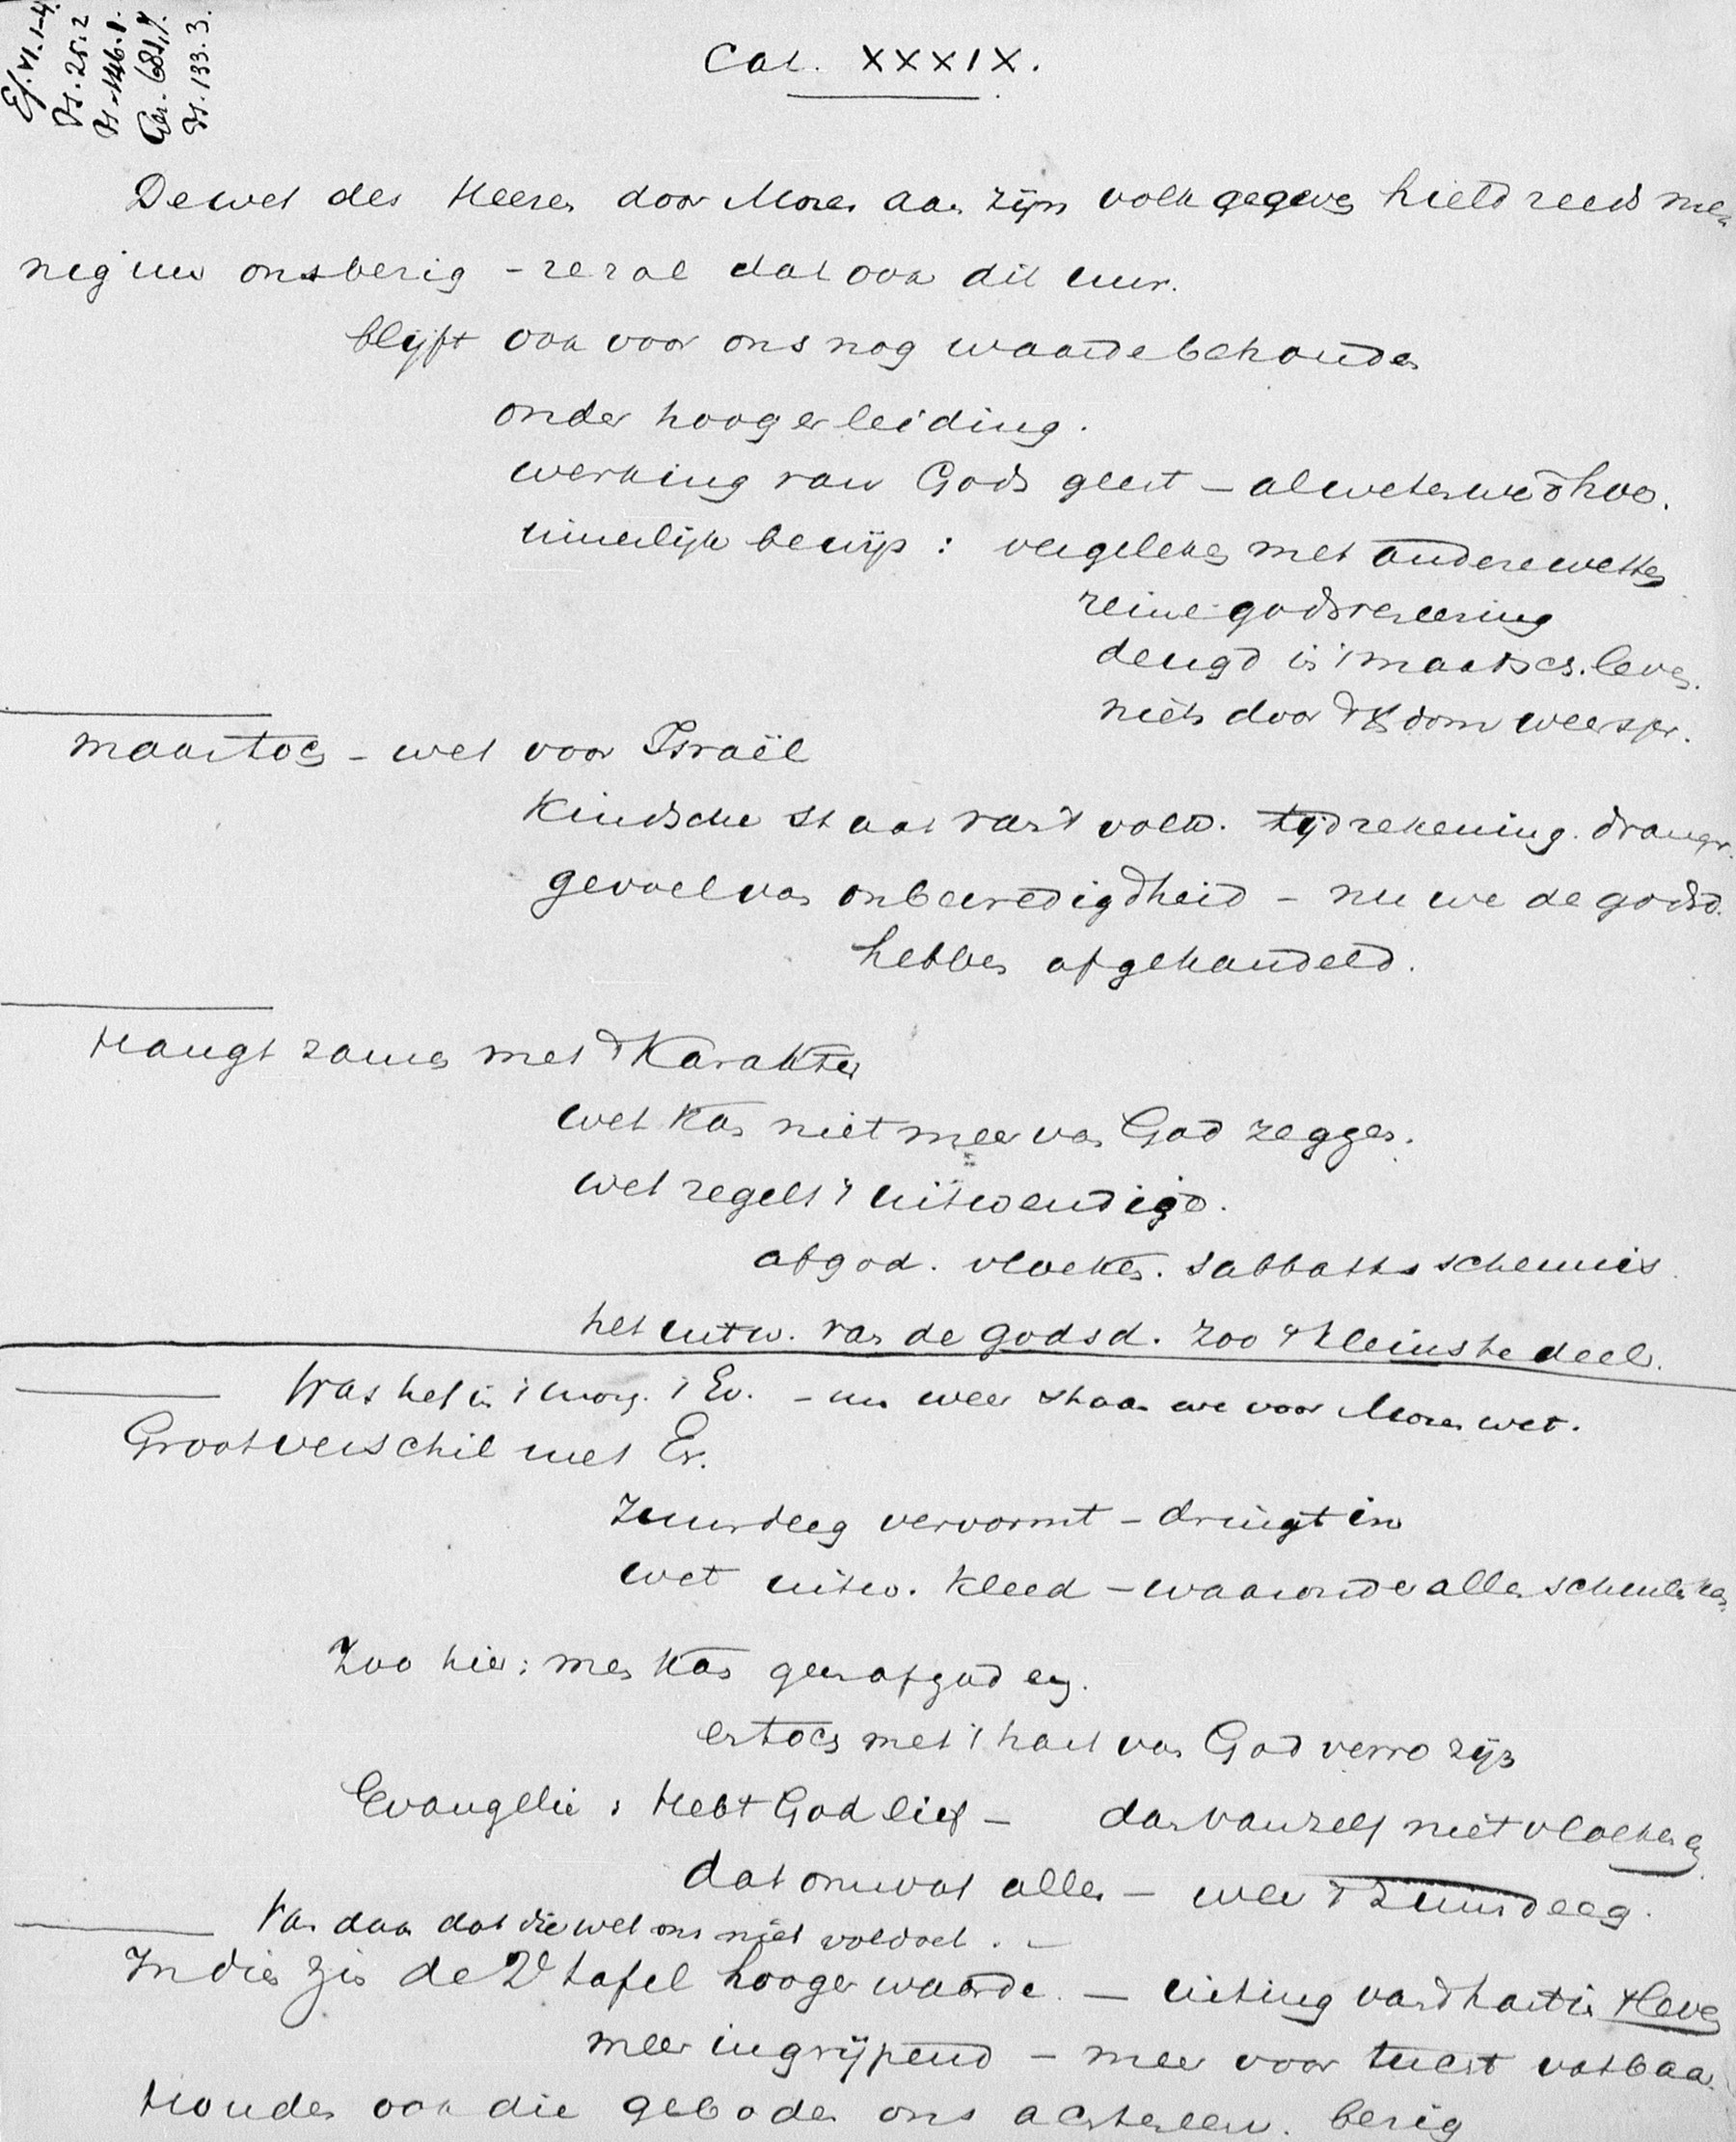 Ef. VI. 1-4.
Ps. 25.2
Ps. 146.8.
Ps. 133.3.
Cat. XXXIX.
De wet des Heeren door Mozes aan zijn volk gegeven hield reeds me-
nig uur ons bezig – ze zal dat ook dit uur.
blijft ook voor ons nog waarde behouden
onder hooger leiding.
werking van Gods geest – al weten we d hoe.
innerlijk bewijs : vergeleken met andere wetten
reine godsvereering
deugd in 't maatsch. leven.
niets door 't X dom weerspr.
maar toch – wet voor Israël
Kindsche staat van 't volk. tijdrekening. drangr.
gevoel van onbevredigdheid – nu we de godsd.
hebben afgehandeld.
Hangt zamen met 't Karakter
wet kan niet meer van God zeggen.
wet regelt 't uitwendige.
afgod. vloeken. sabbathsschennis
het uitw. van de godsd. zoo 't kleinste deel.
Was het in 't morg. 't Ev. – nu weer staan we voor Mozes wet.
Groot verschil met Ev.
Zuurdeeg vervormt – dringt in
wet uitw. kleed – waaronder alles schuilen kan
Zoo hier: men kan geen afgod en.
en toch met 't hart van God verre zijn
Evangelie : Hebt God lief – dan vanzelf niet vloeken en
dat omvat alles – weer 't Zuurdeeg.
Van daar dat die wet ons niet voldoet. –
In die zin de 2e tafel hooger waarde. – uiting van 't hart in 't leven
meer ingrijpend – meer voor tucht vatbaar
Houden ook die geboden ons achtereen. bezig